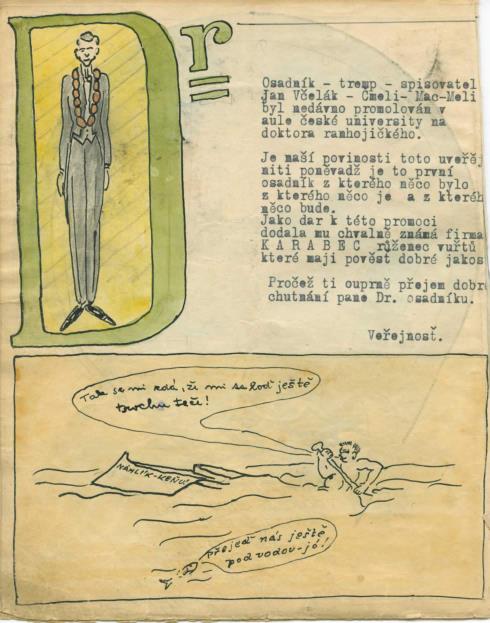 Dr
Osadník - tremp - spisovatel
Jan Včelák - Čmeli- Mac-Meli
byl nedávno promolován v
aule české university na
doktora ranhojičkého.
Je naší povinosti toto uveřej
niti poněvadž je to první
osadník z kterého něco bylo
z kterého něco je a z kteréh
něco bude.
Jako dar k této promoci
dodala mu chvalně známá firma
KARABEC růženec vuřtů
které maji pověst dobré jakos
Pročež ti ouprně přejem dobré
chutnání pane Dr. osadníku.
Veřejnosť.
Tak se mi zdá, že mi sa loď ještě
trochu teče!
NÁHLÍK-KEŇU
přejeď nás ještě
pod vodou-jó!